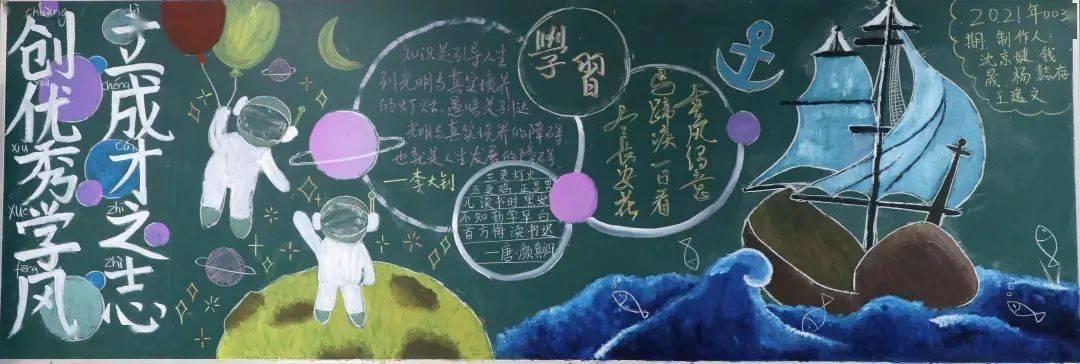 创优秀学风
chuàng
xiù
xué
fēng
立成才之志
lì
chéng
cái
zhī
zhì
知识是引导人生
到光明与真实境界
的灯烛,愚暗是引达
光明与真实境界的障碍
也就是人生发展的障碍
—李大钊
學習
三更灯火
五更鸡 正是男
儿读书时 黑发
不知勤学早 白
首方悔读书迟
—唐·颜真卿
春风得意
马蹄疾一日看
尽长安花
2021年003
期 制作人:
沈京婕 钱
晟 杨懿存
王逸文